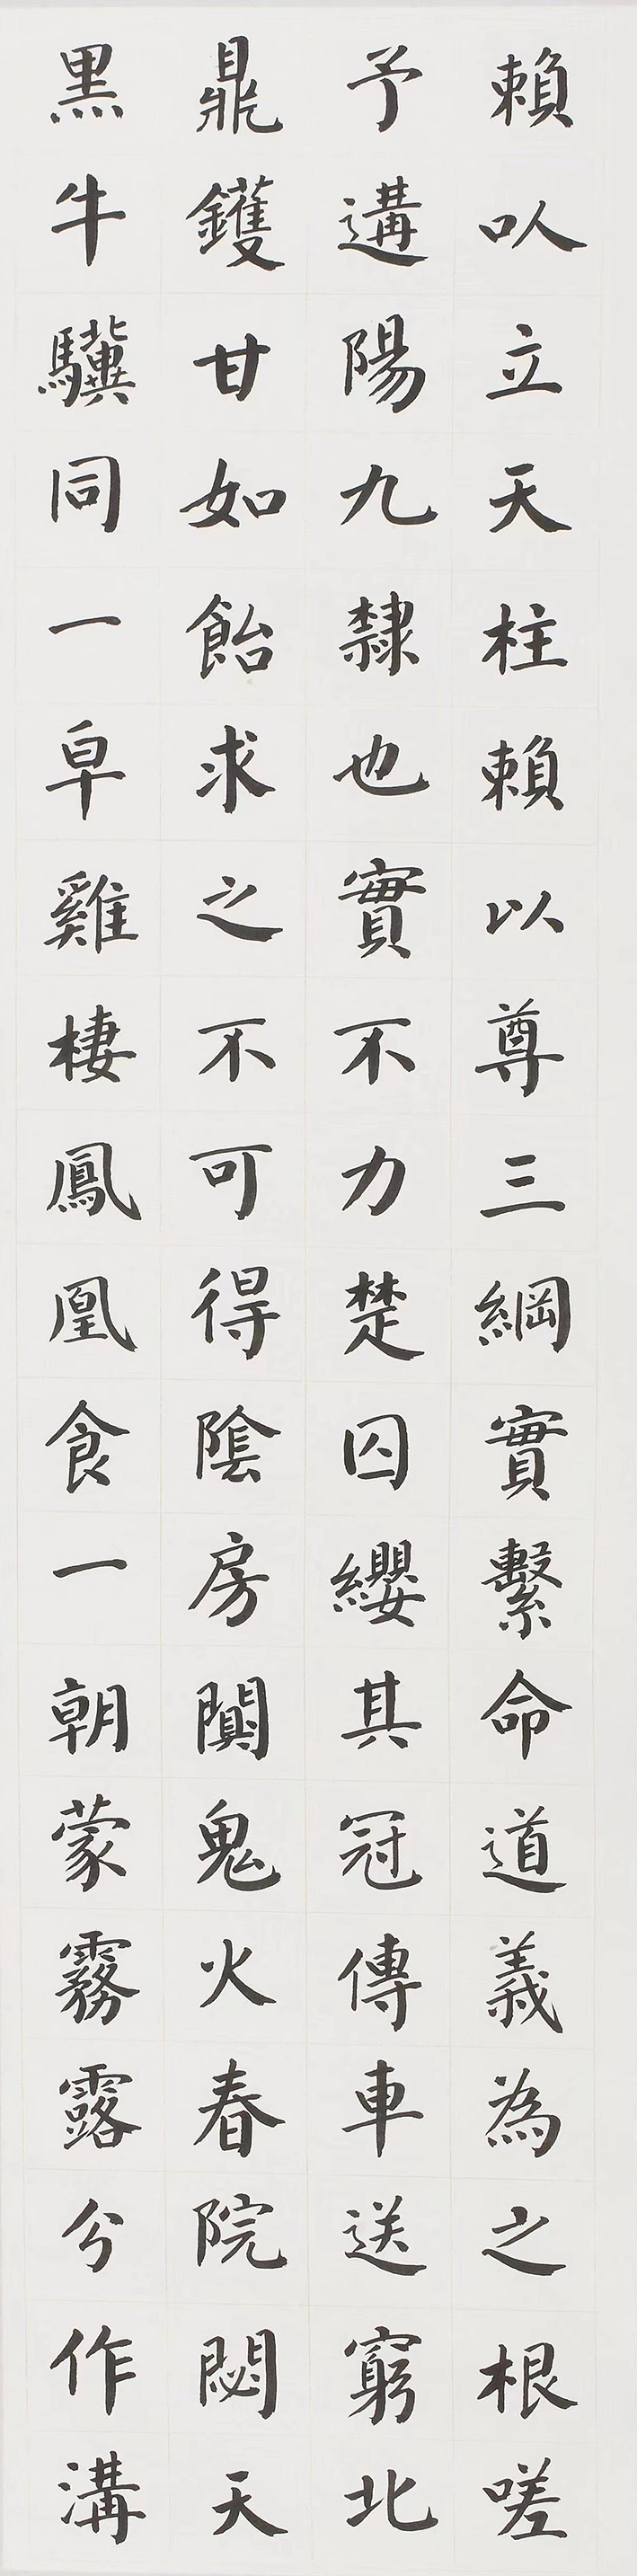 賴以立天柱賴以尊三綱實繫命道義為之根嗟
予遘陽九隸也實不力楚囚纓其冠傳車送窮北
鼎鑊甘如飴求之不可得陰房闃鬼火春院閟天
黑牛驥同一皁雞棲鳳凰食一朝蒙霧露兮作溝